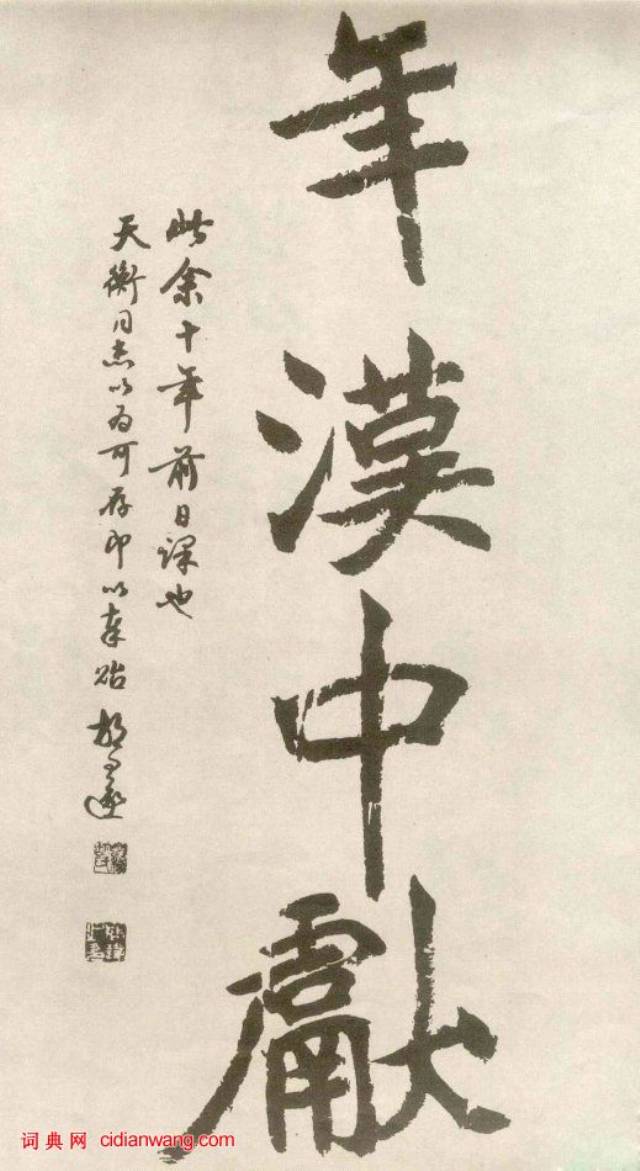 年漢中獻
此余十年前日課也
天衡同志以为可存印以奉贻
词典网 cidianwang.com